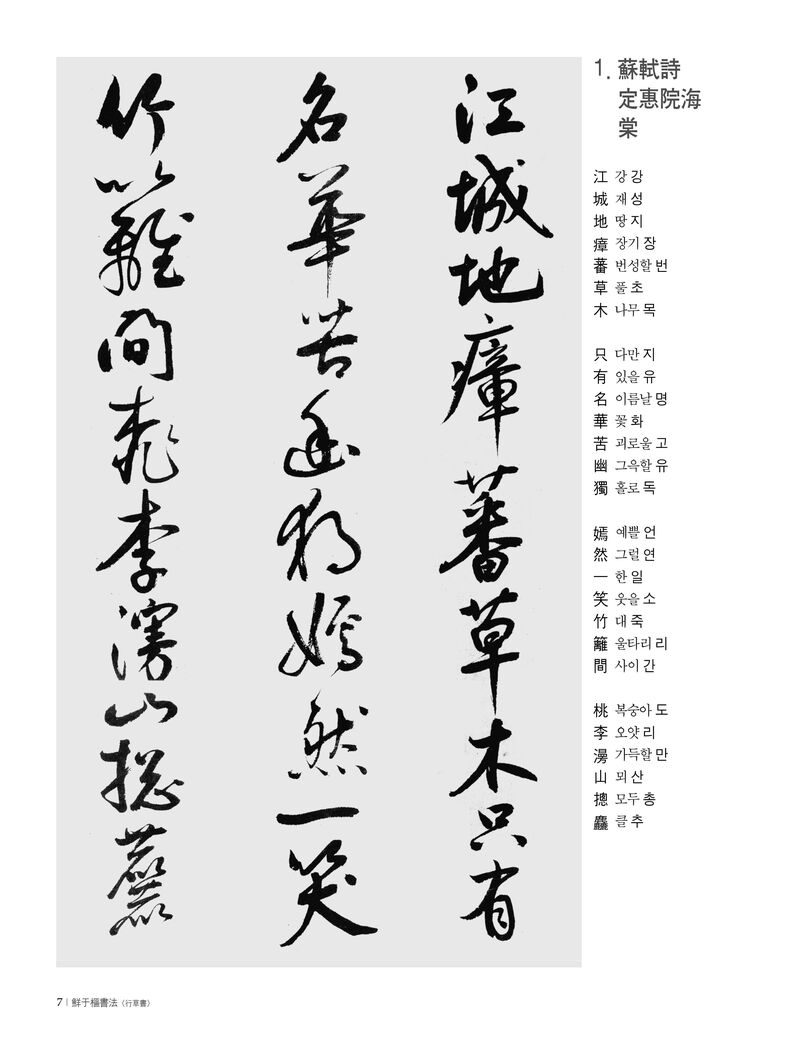 1. 蘇軾詩
定惠院海
棠
江城地瘴蕃草木只有
名華苦幽獨嫣然一笑
竹籬間桃李漫山摠麤
江 강 강
城 재 성
地 땅 지
瘴 장기 장
蕃 번성할 번
草 풀 초
木 나무 목
只 다만 지
有 있을 유
名 이름날 명
華 꽃 화
苦 괴로울 고
幽 그윽할 유
獨 홀로 독
嫣 예쁠 언
然 그럴 연
一 한 일
笑 웃을 소
竹 대 죽
籬 울타리 리
間 사이 간
桃 복숭아 도
李 오얏 리
澷 가득할 만
山 뫼 산
摠 모두 총
麤 클 추
7 | 鮮于樞書法 (行草書)